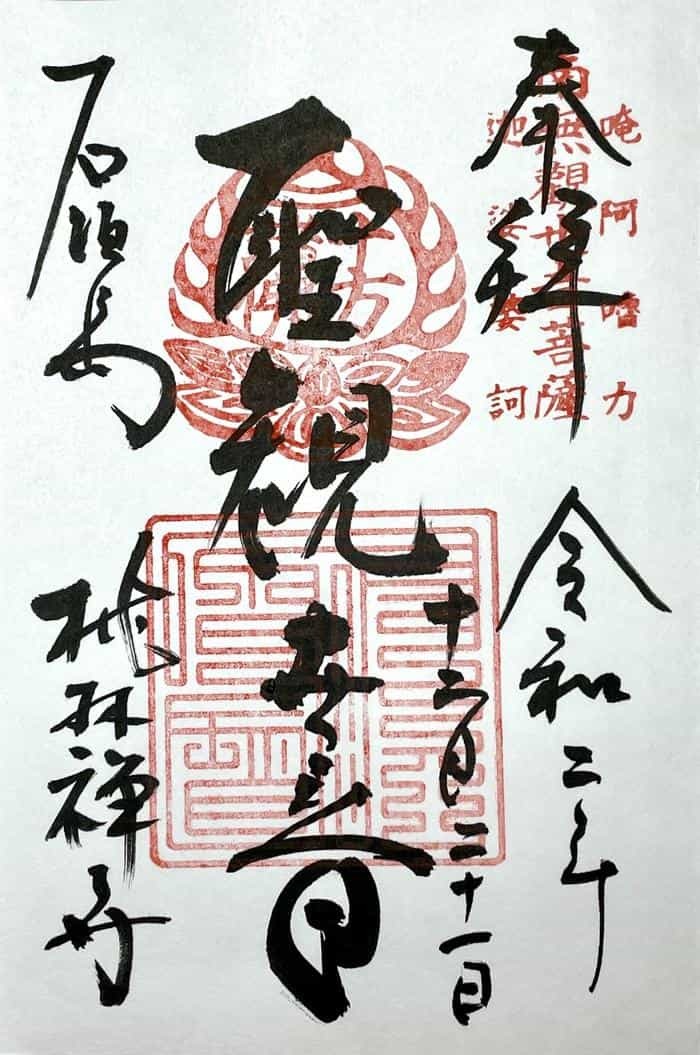 奉拝
令和二年
十二月二十一日
唵阿嚕力
南無觀世音菩薩
迦娑婆訶
聖観世音
石垣島
桃林禅寺